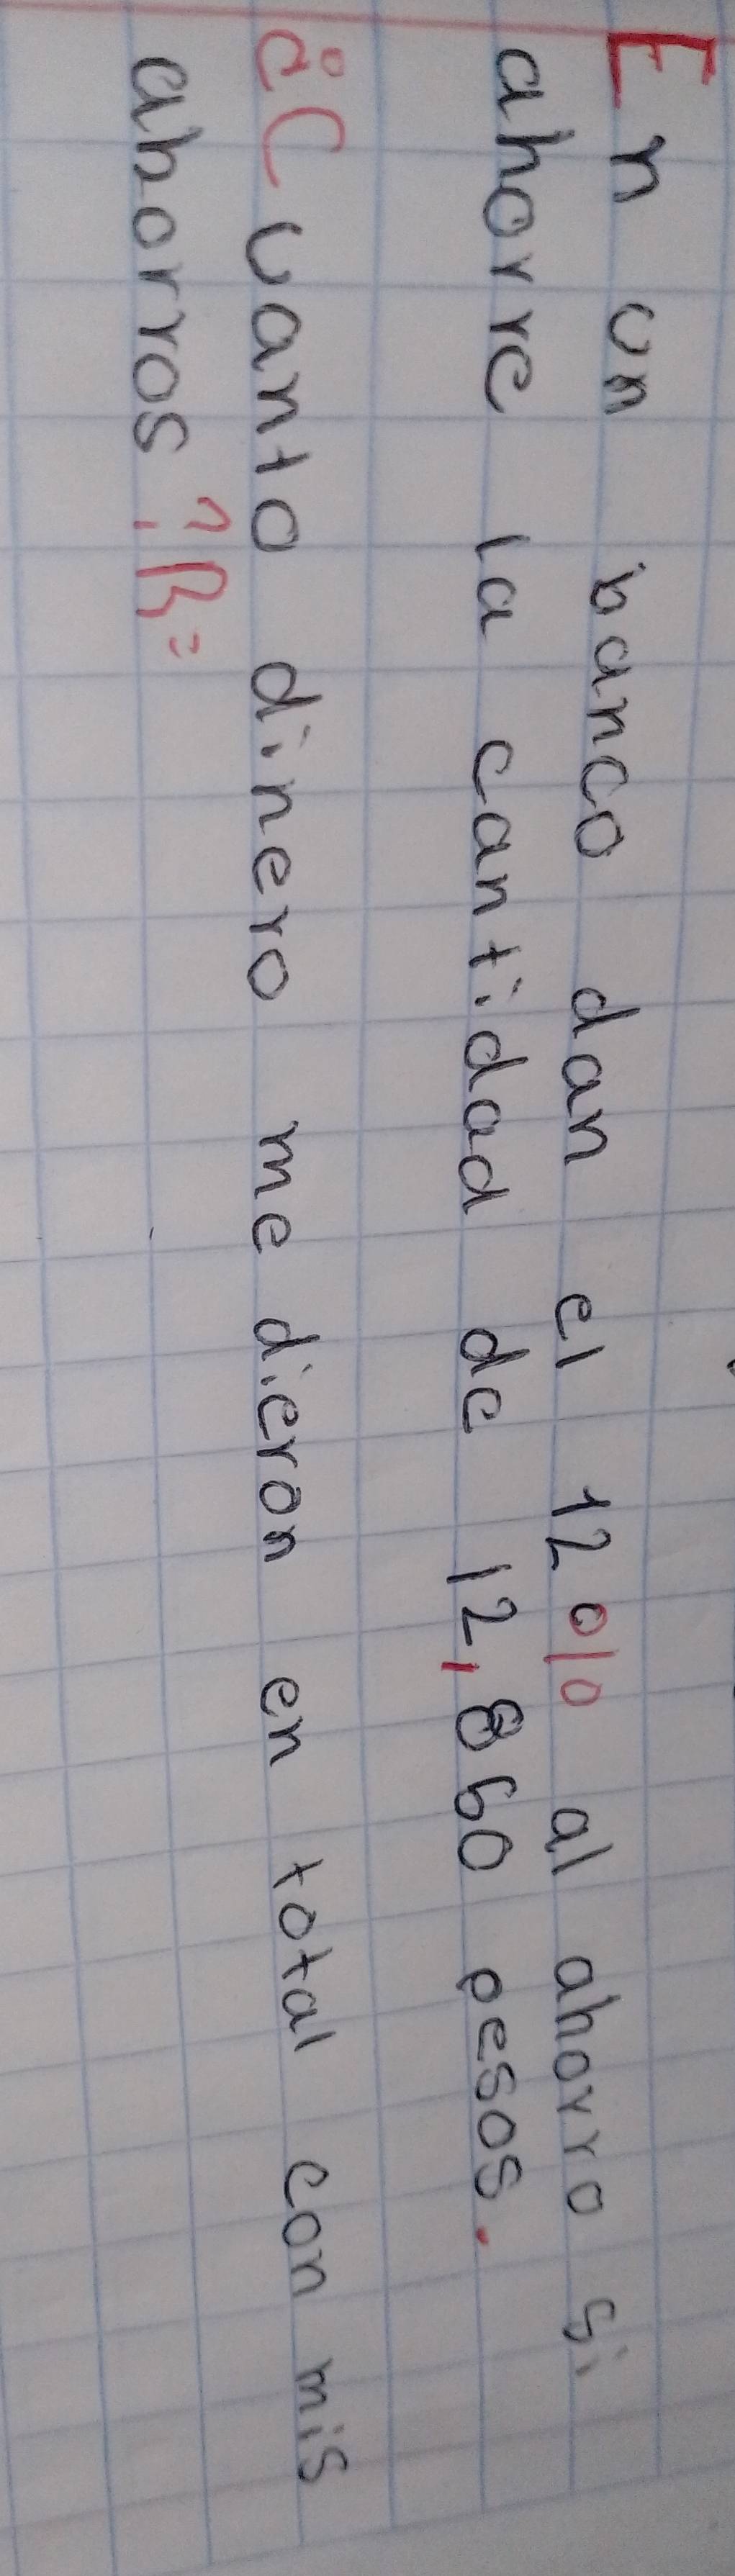 En un banco dan el 12% al ahorro si
ahorre la cantidad de 12,860 pesos.
¿Cuanto dinero me dieron en total con mis
ahorros? R=